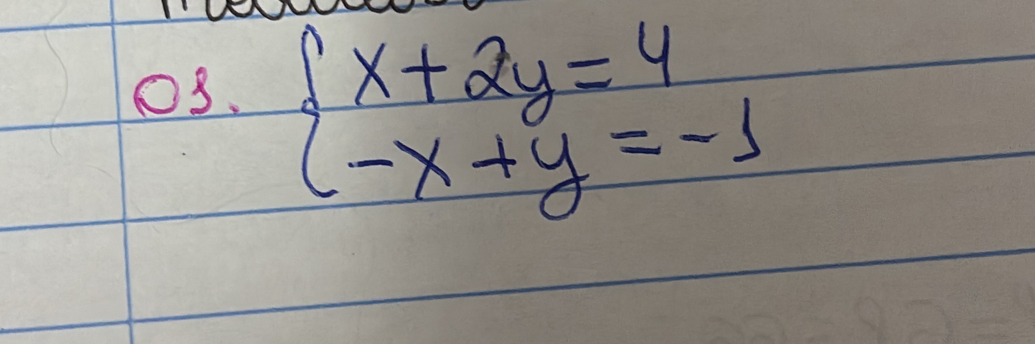 01. { x + 2y = 4
-x + y = -1